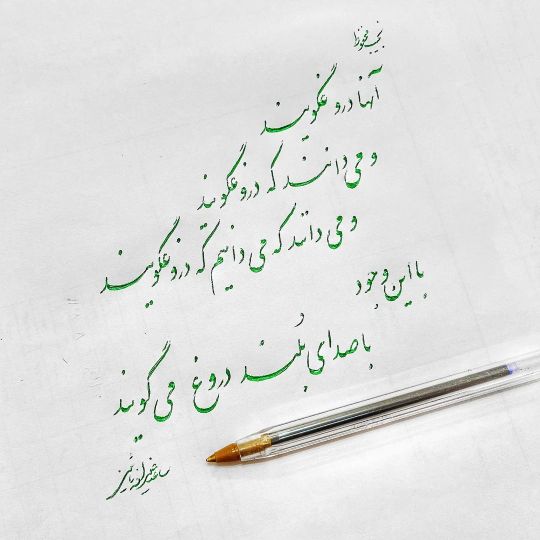 نجیب محفوظ
آنها دروغگویند
و می دانند که دروغگویند
و می دانند که می دانیم که دروغگویند
با این وجود
با صدای بلند دروغ می گویند